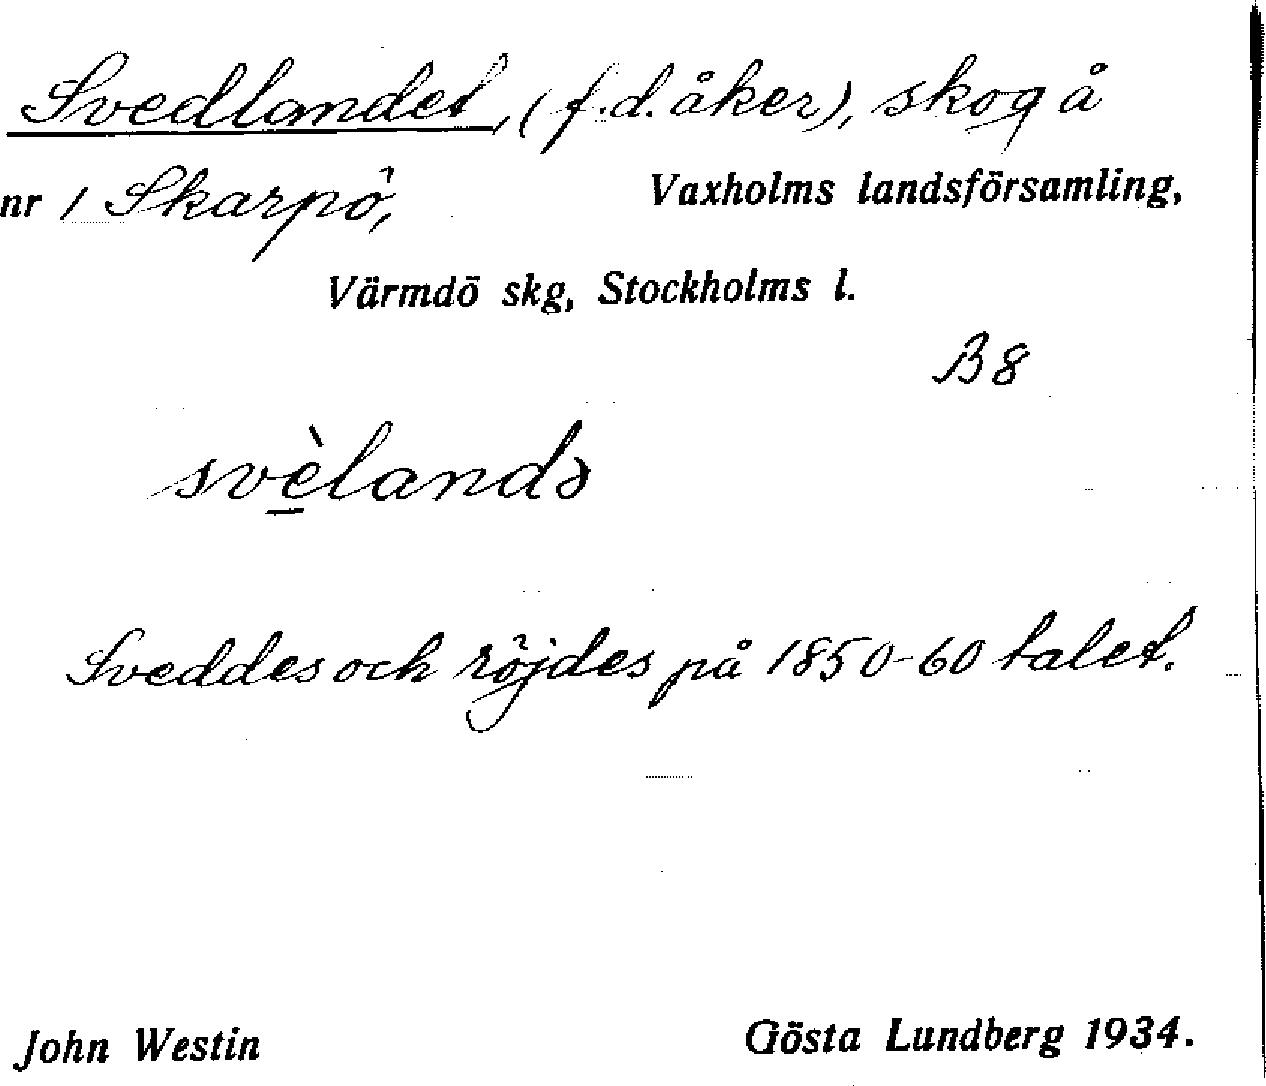 Svedlandet, (f.d. åker), skog å
nr 1 Skarpö, Vaxholms landsförsamling,
Värmdö skg, Stockholms l.
B8
svè̱landə
Sveddes och röjdes på 1850-60 talet.
John Westin Gösta Lundberg 1934.